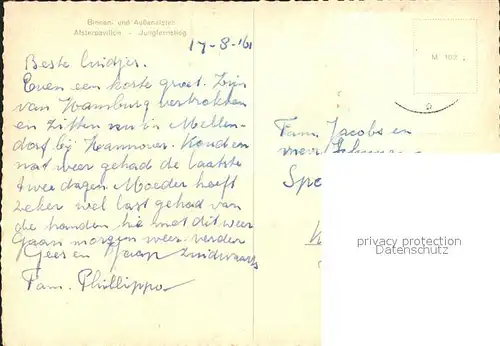 Binnen- und Außenalster
Alsterpavillon - Jungfernstieg
17-8-'61
Beste luidjes.
Even een korte groet. Zijn
van Hamburg vertrokken
en zitten nu in Mellen-
dorf bij Hannover. Koud en
nat weer gehad de laatste
twee dagen. Moeder heeft
zeker wel last gehad van
de handen hè met dit weer
Gaan morgen weer verder
en Jaap Zuidwaarts
Fam. Phillippo
M 103
Fam. Jacobs en
mevr.
Spe
privacy protection
Datenschutz